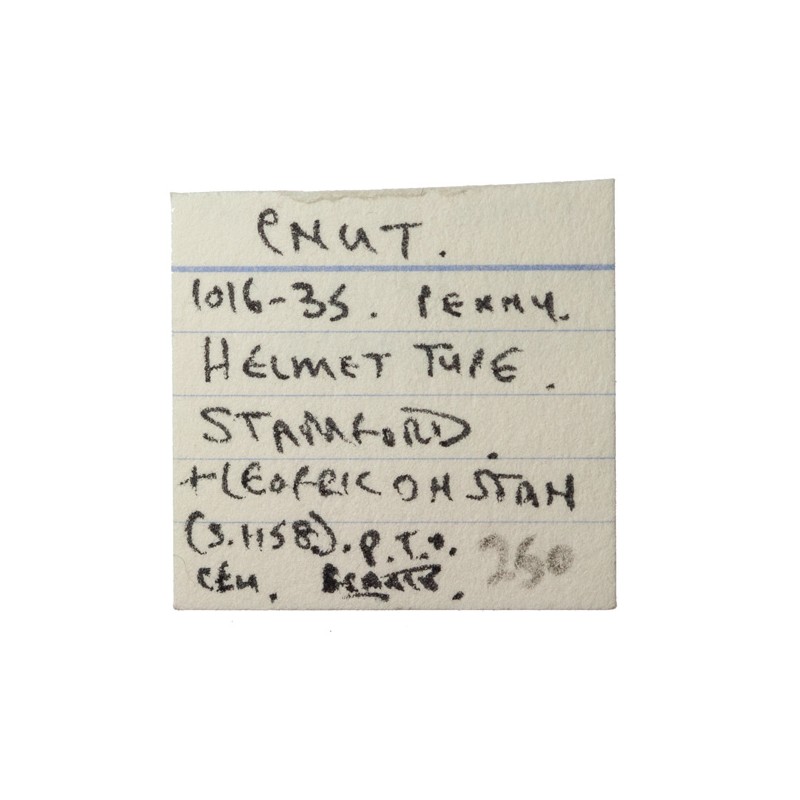 CNUT.
1016-35. PENNY.
HELMET TYPE.
STAMFORD.
+LEOFRIC ON STAN
(S.1158). P.T.O.
GEM. 250